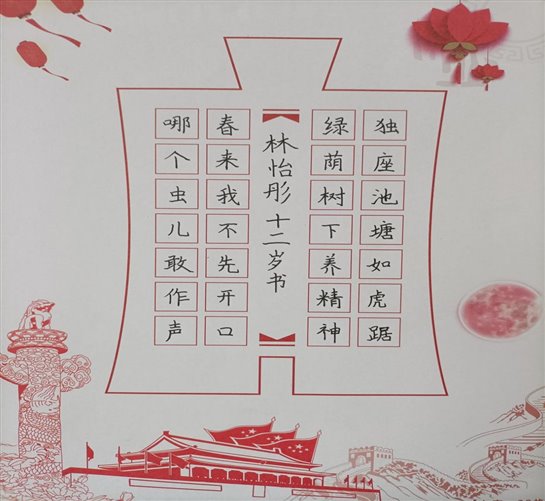 独座池塘如虎踞
绿荫树下养精神
林怡彤十二岁书
春来我不先开口
哪个虫儿敢作声